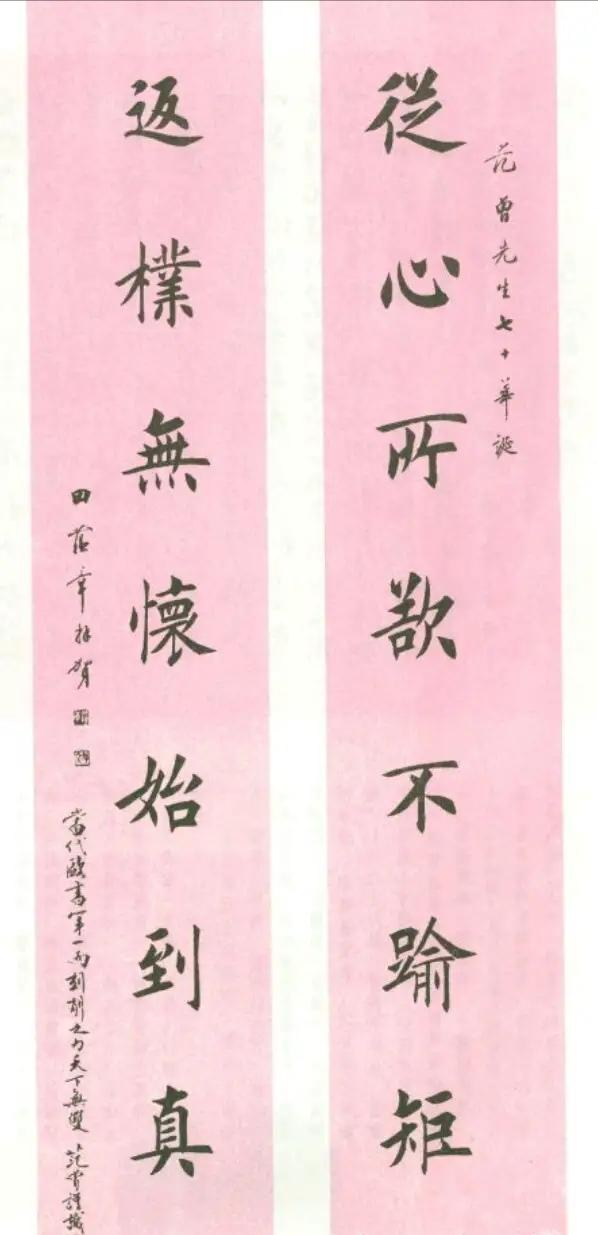 范曾先生七十華誕
從心所欲不踰矩
返樸無懷始到真
田蘊章拜賀
當代歐書第一而刻削之力天下無雙 范曾謹識